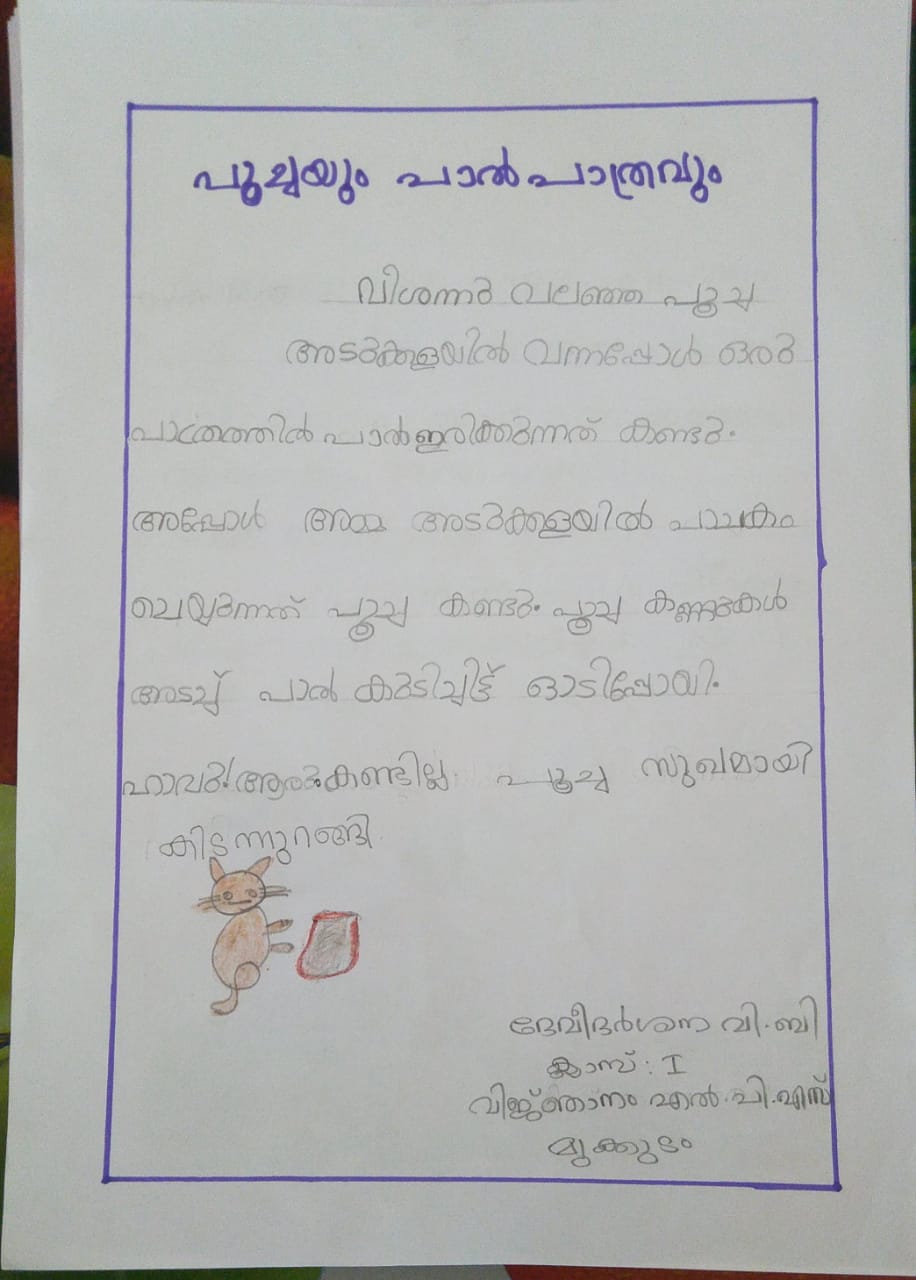 പൂച്ചയും പാൽപാത്രവും
വിശന്നു വലഞ്ഞ പൂച്ച
അടുക്കളയിൽ വന്നപ്പോൾ ഒരു
പാത്രത്തിൽ പാൽഇരിക്കുന്നത് കണ്ടു.
അപ്പോൾ അമ്മ അടുക്കളയിൽ പാചകം
ചെയ്യുന്നത് പൂച്ച കണ്ടു. പൂച്ച കണ്ണുകൾ
അടച്ച് പാൽ കുടിച്ചിട്ട് ഓടിപ്പോയി.
ഹാവു! ആരുംകണ്ടില്ല പൂച്ച സുഖമായി
കിടന്നുറങ്ങി.
ദേവീദർശന വി.ബി
ക്ലാസ് : I
വിജ്ഞാനം എൽ.പി.എസ്
മുക്കുടം